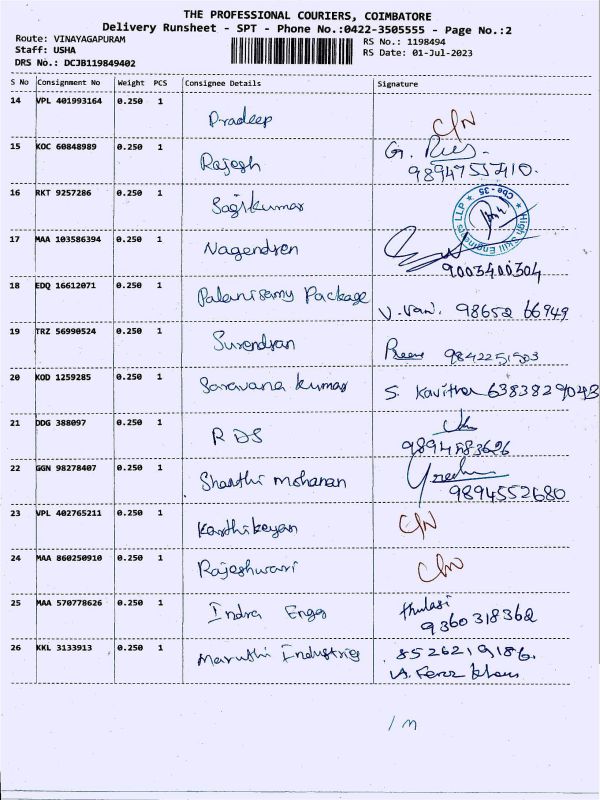 THE PROFESSIONAL COURIERS, COIMBATORE
Delivery Runsheet - SPT - Phone No.:0422-3505555 - Page No.:2
Route: VINAYAGAPURAM RS No.: 1198494
Staff: USHA RS Date: 01-Jul-2023
DRS No.: DCJB119849402
S No Consignment No Weight PCS Consignee Details Signature
14 VPL 401993164 0.250 1 Pradeep C/N
15 KOC 60848989 0.250 1 Rajesh G.
9894755410.
16 RKT 9257286 0.250 1 Sagikumar
High Skill Engineers LLP * Cbe - 35 *
17 MAA 103586394 0.250 1 Nagendren
9003400304
18 EDQ 16612071 0.250 1 Palanisamy Package V. 98652 66949
19 TRZ 56990524 0.250 1 Surendran
20 KOD 1259285 0.250 1 Saravana kumar S. Kavitha 6383829043
21 DDG 388097 0.250 1 RDS
22 GGN 98278407 0.250 1 Shanthi mohanan
9894552680
23 VPL 402765211 0.250 1 Karthikeyan C/N
24 MAA 860250910 0.250 1 Rajeshwari C/N
25 MAA 570778626 0.250 1 Indra Engg thulasi
9360318362
26 KKL 3133913 0.250 1 Maruthi Industries 8526219186.